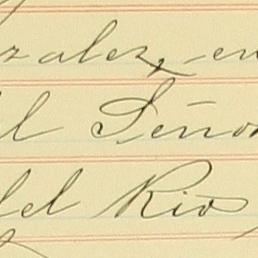 zales, en
l Señor
del Rio